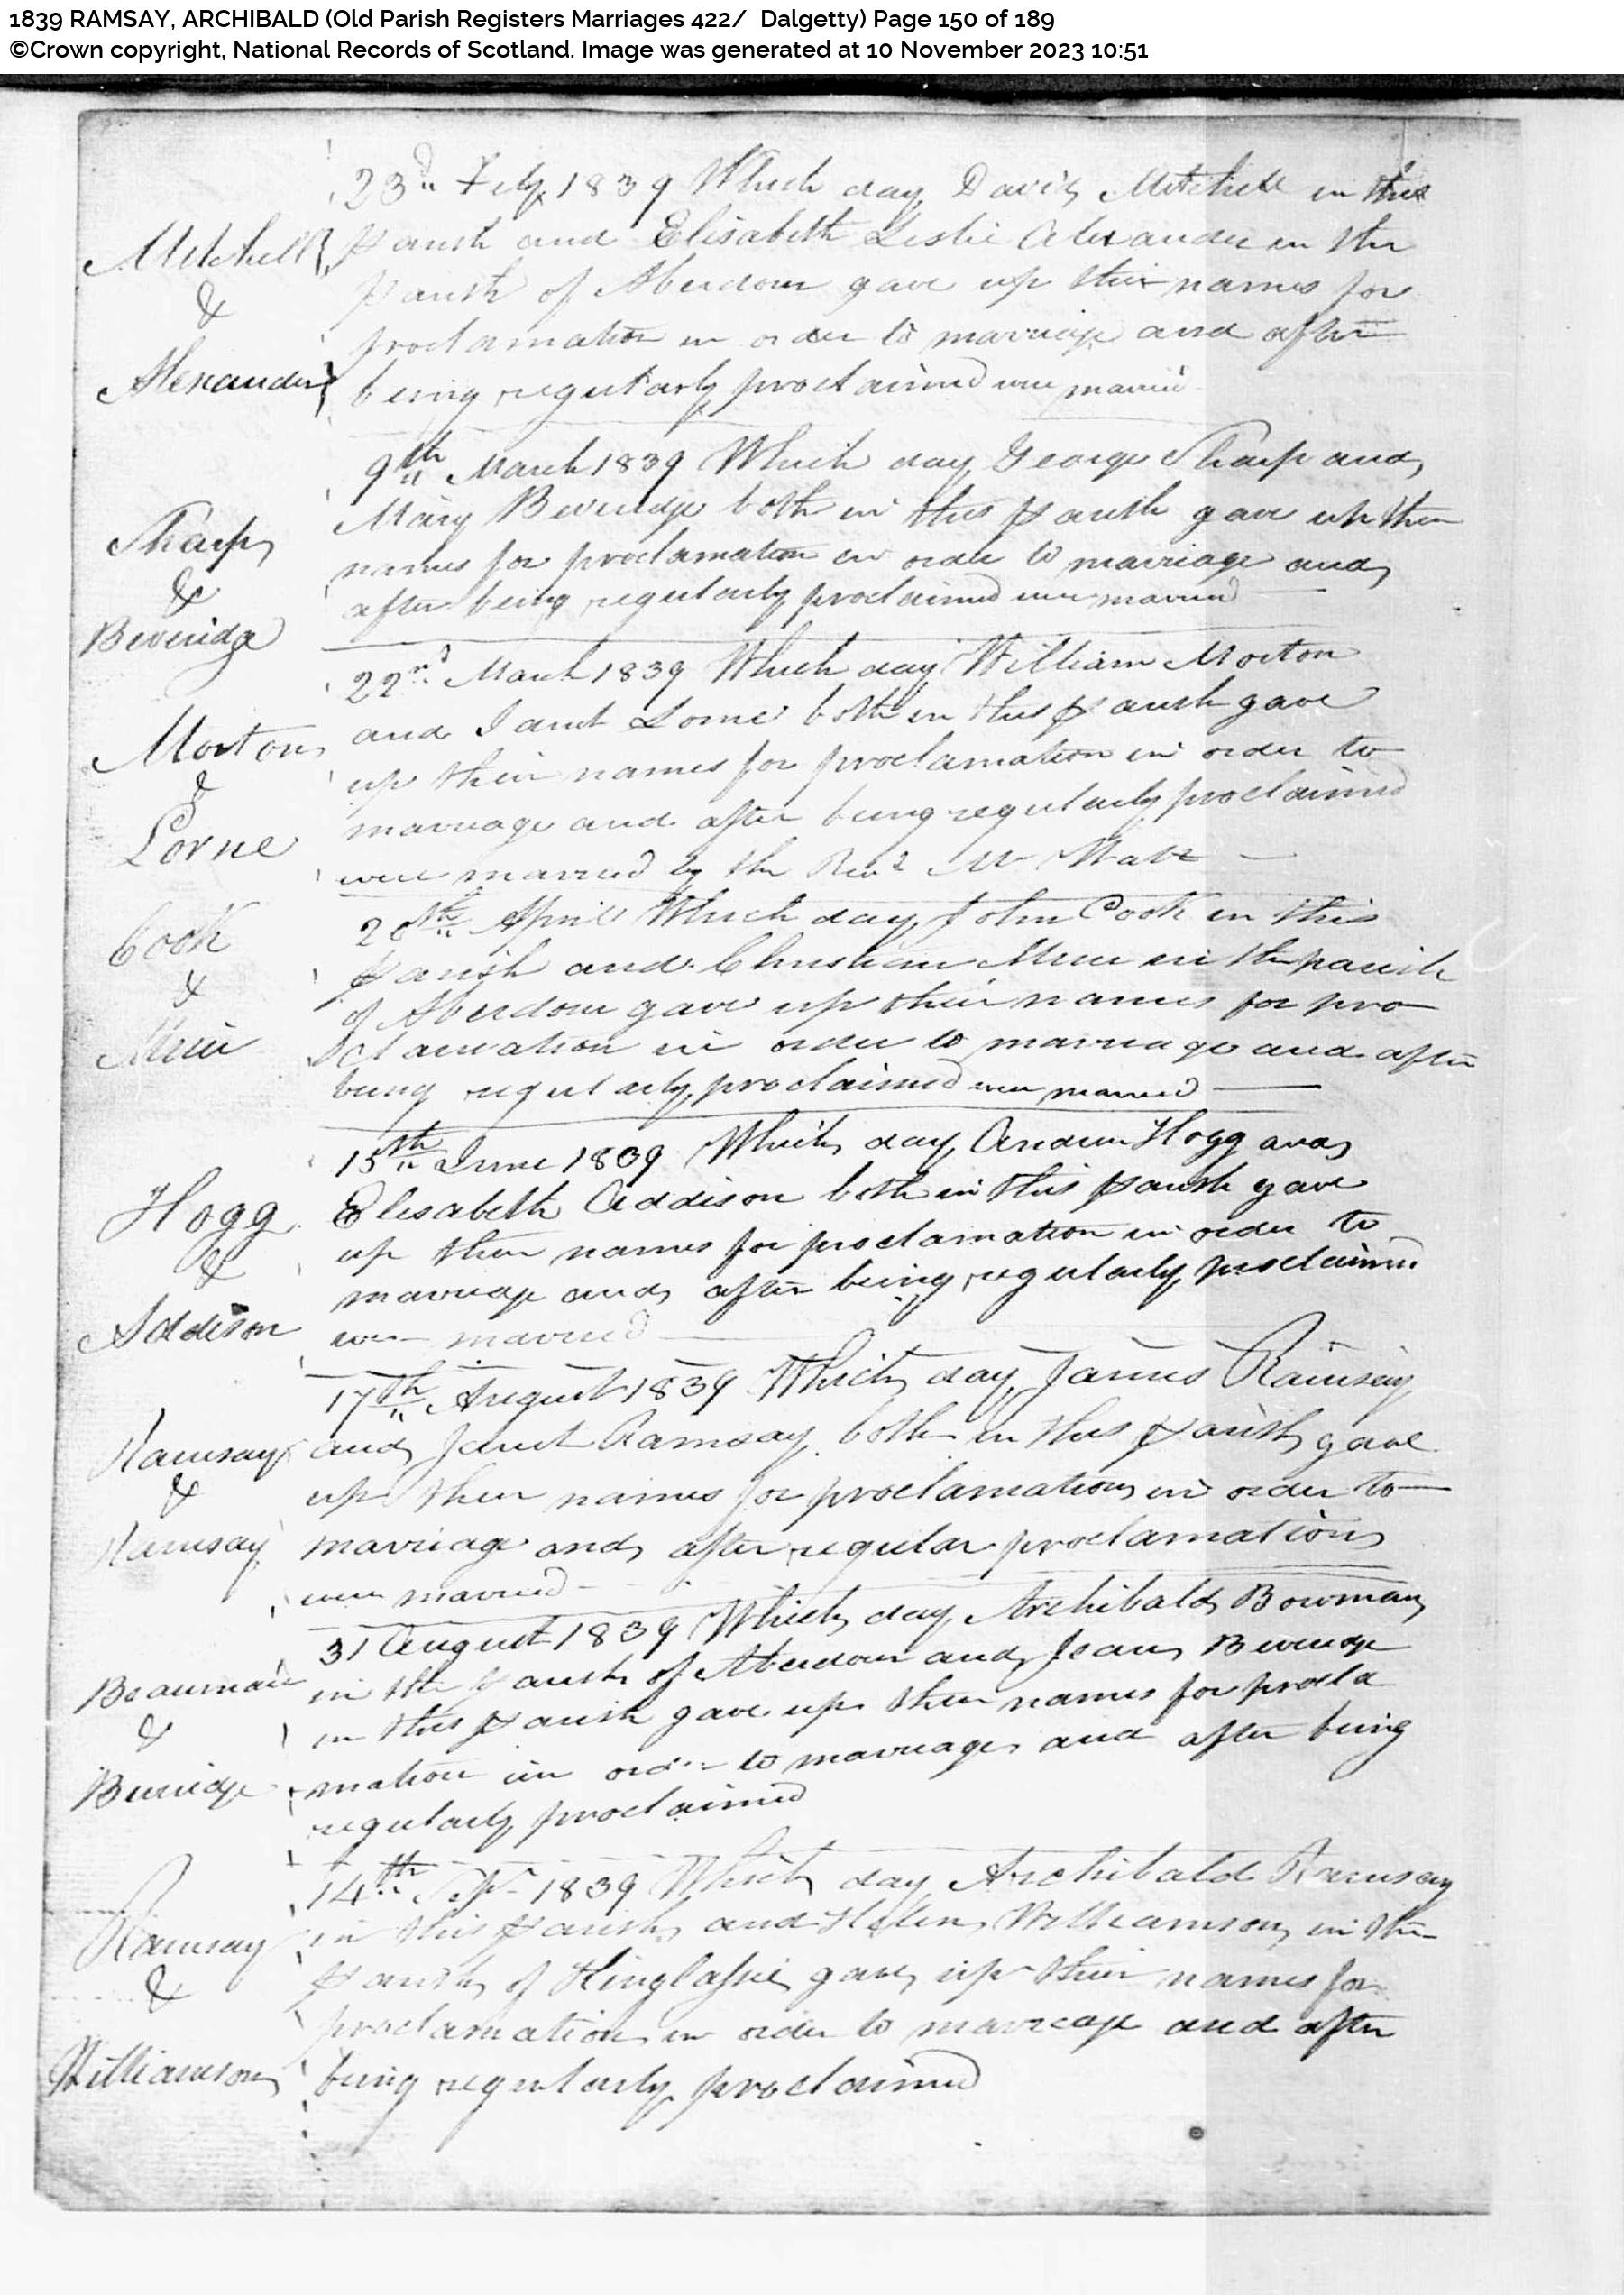 1839 RAMSAY, ARCHIBALD (Old Parish Registers Marriages 422/ Dalgetty) Page 150 of 189
©Crown copyright, National Records of Scotland. Image was generated at 10 November 2023 10:51
23d Feby 1839 Which day David Mitchell in this
Mitchell parish and Elisabeth Leslie Alexander in the
& parish of Aberdour gave up their names for
proclamation in order to marriage and after
Alexander being regularly proclaimed were married
9th March 1839 Which day George Sharp and
Sharp Mary Beveridge both in this parish gave up their
& names for proclamation in order to marriage and
Beveridge after being regularly proclaimed were married
22nd March 1839 Which day William Morton
Morton and Janet Lorne both in this parish gave
& up their names for proclamation in order to
Lorne marriage and after being regularly proclaimed
were married by the Revd Mr Watt
Cook 20th April Which day John Cook in this
& parish and Christian Muir in the parish
of Aberdour gave up their names for pro
Muir clamation in order to marriage and after
being regularly proclaimed were married
15th June 1839 Which day Andrew Hogg and
Hogg Elisabeth Addison both in this parish gave
& up their names for proclamation in order to
Addison marriage and after being regularly proclaimed
were married
17th August 1839 Which day James Ramsay
Ramsay and Janet Ramsay both in this parish gave
& up their names for proclamation in order to
Ramsay marriage and after regular proclamation
were married
31 August 1839 Which day Archibald Bowman
Beauman in the parish of Aberdour and Jean Beveridge
& in this parish gave up their names for procla
Beveridge mation in order to marriage and after being
regularly proclaimed
14th Sepr 1839 Which day Archibald Ramsay
Ramsay in this parish and Helen Williamson in the
& parish of Kinglassie gave up their names for
proclamation in order to marriage and after
Williamson being regularly proclaimed